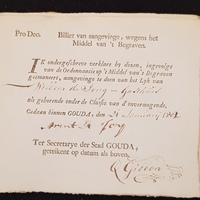 Pro Deo. Billet van aangevinge, wegens het
Middel van 't Begraven.
IK ondergeschreve verklare by dezen, ingevolge
van de Ordonnantie op 't Middel van 't Begraven
geëmaneert, aangevinge te doen van het Lyk van
Willem de Jong
als gehorende onder de Classis van d'onvermogende.
Gedaan binnen GOUDA, den 21 January
Arent de Jong
Ter Secretarye der Stad GOUDA,
geteikent op datum als boven,